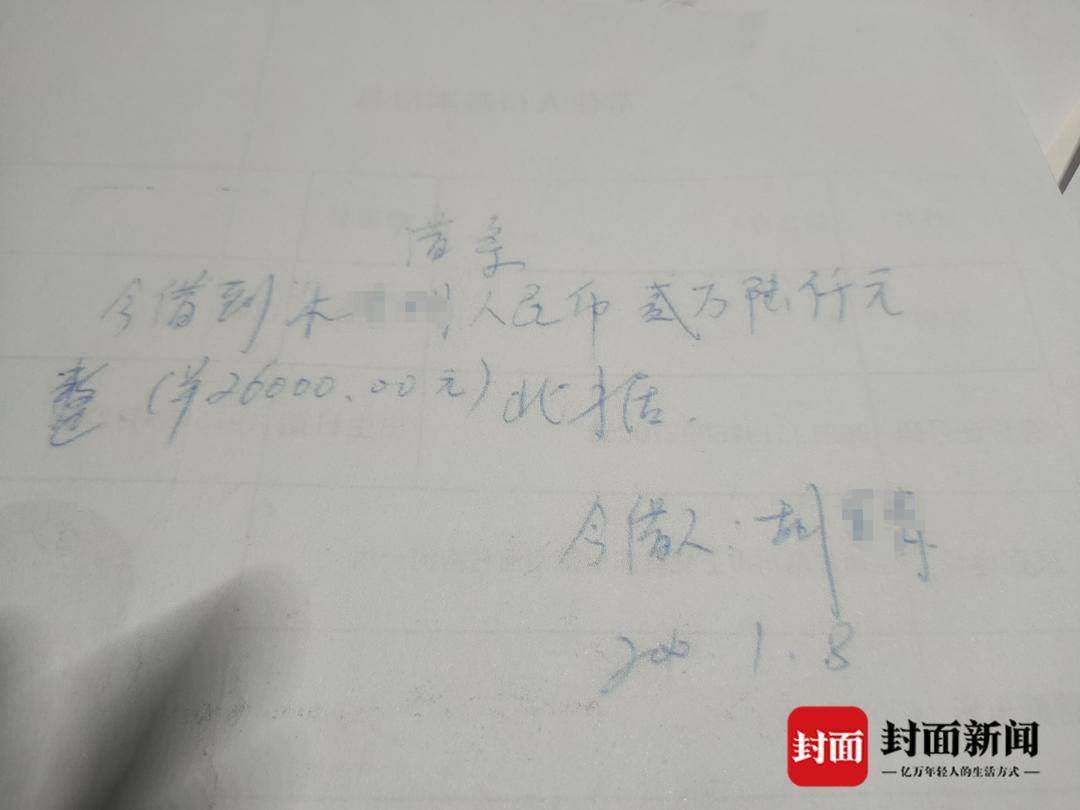 借条
今借到木 人民币贰万陆仟元
整(¥26000.00元)此才据.
今借人:胡
1.8
封面 封面新闻
亿万年轻人的生活方式